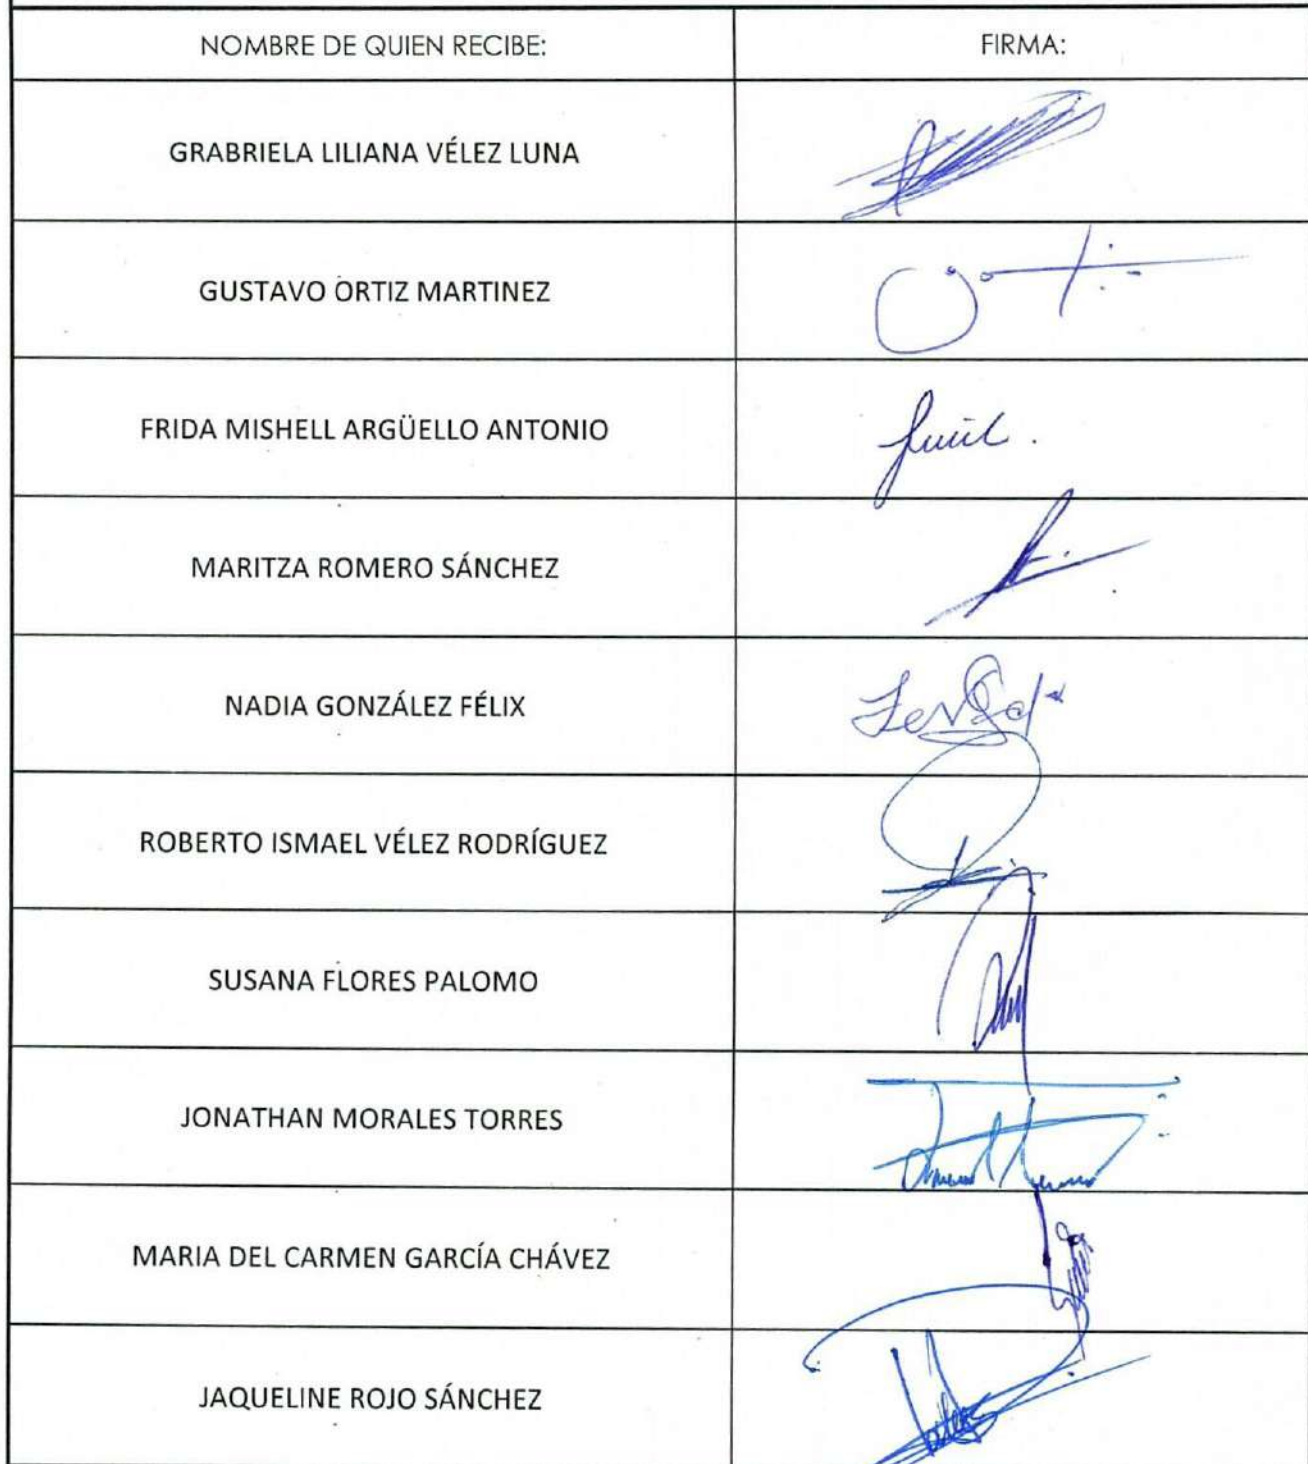 NOMBRE DE QUIEN RECIBE: FIRMA:
GRABRIELA LILIANA VÉLEZ LUNA
GUSTAVO ORTIZ MARTINEZ
FRIDA MISHELL ARGÜELLO ANTONIO
MARITZA ROMERO SÁNCHEZ
NADIA GONZÁLEZ FÉLIX
ROBERTO ISMAEL VÉLEZ RODRÍGUEZ
SUSANA FLORES PALOMO
JONATHAN MORALES TORRES
MARIA DEL CARMEN GARCÍA CHÁVEZ
JAQUELINE ROJO SÁNCHEZ